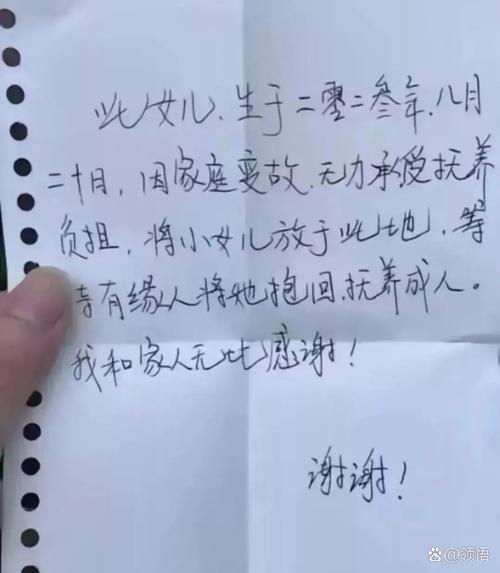 此女儿、生于二零二叁年、八月
二十日，因家庭变故、无力承受抚养
负担，将小女儿放于此地，等
待有缘人将她抱回、抚养成人。
我和家人无比感谢！
谢谢！
领悟